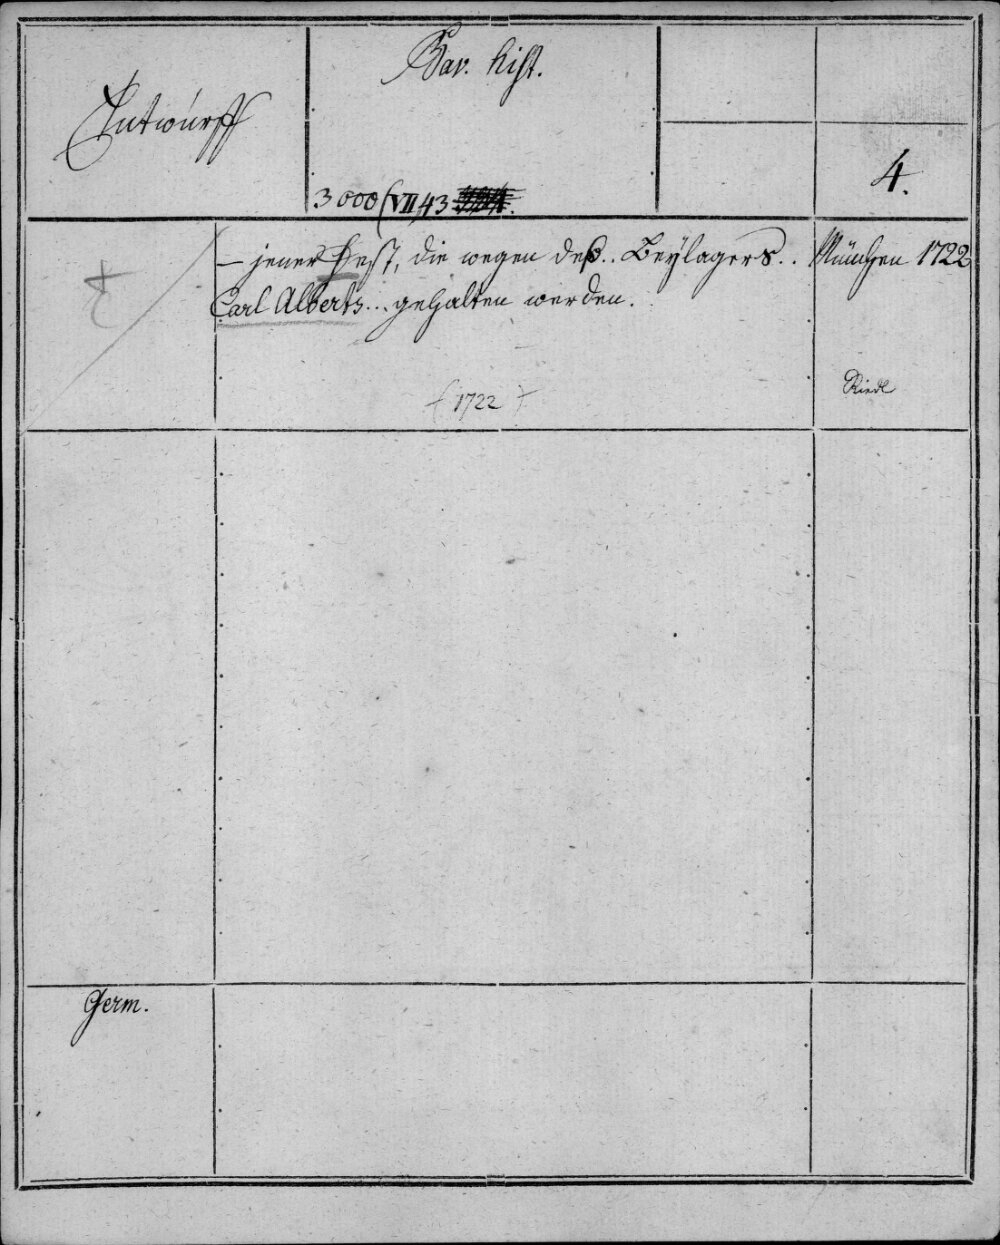 Entwurff
Bav. hist.
3000 (VII,43
4.
– jener Fest, die wegen deß.. Beylagers..
Carl Alberts... gehalten werden.
München 1722
(1722)
Riedl
Germ.